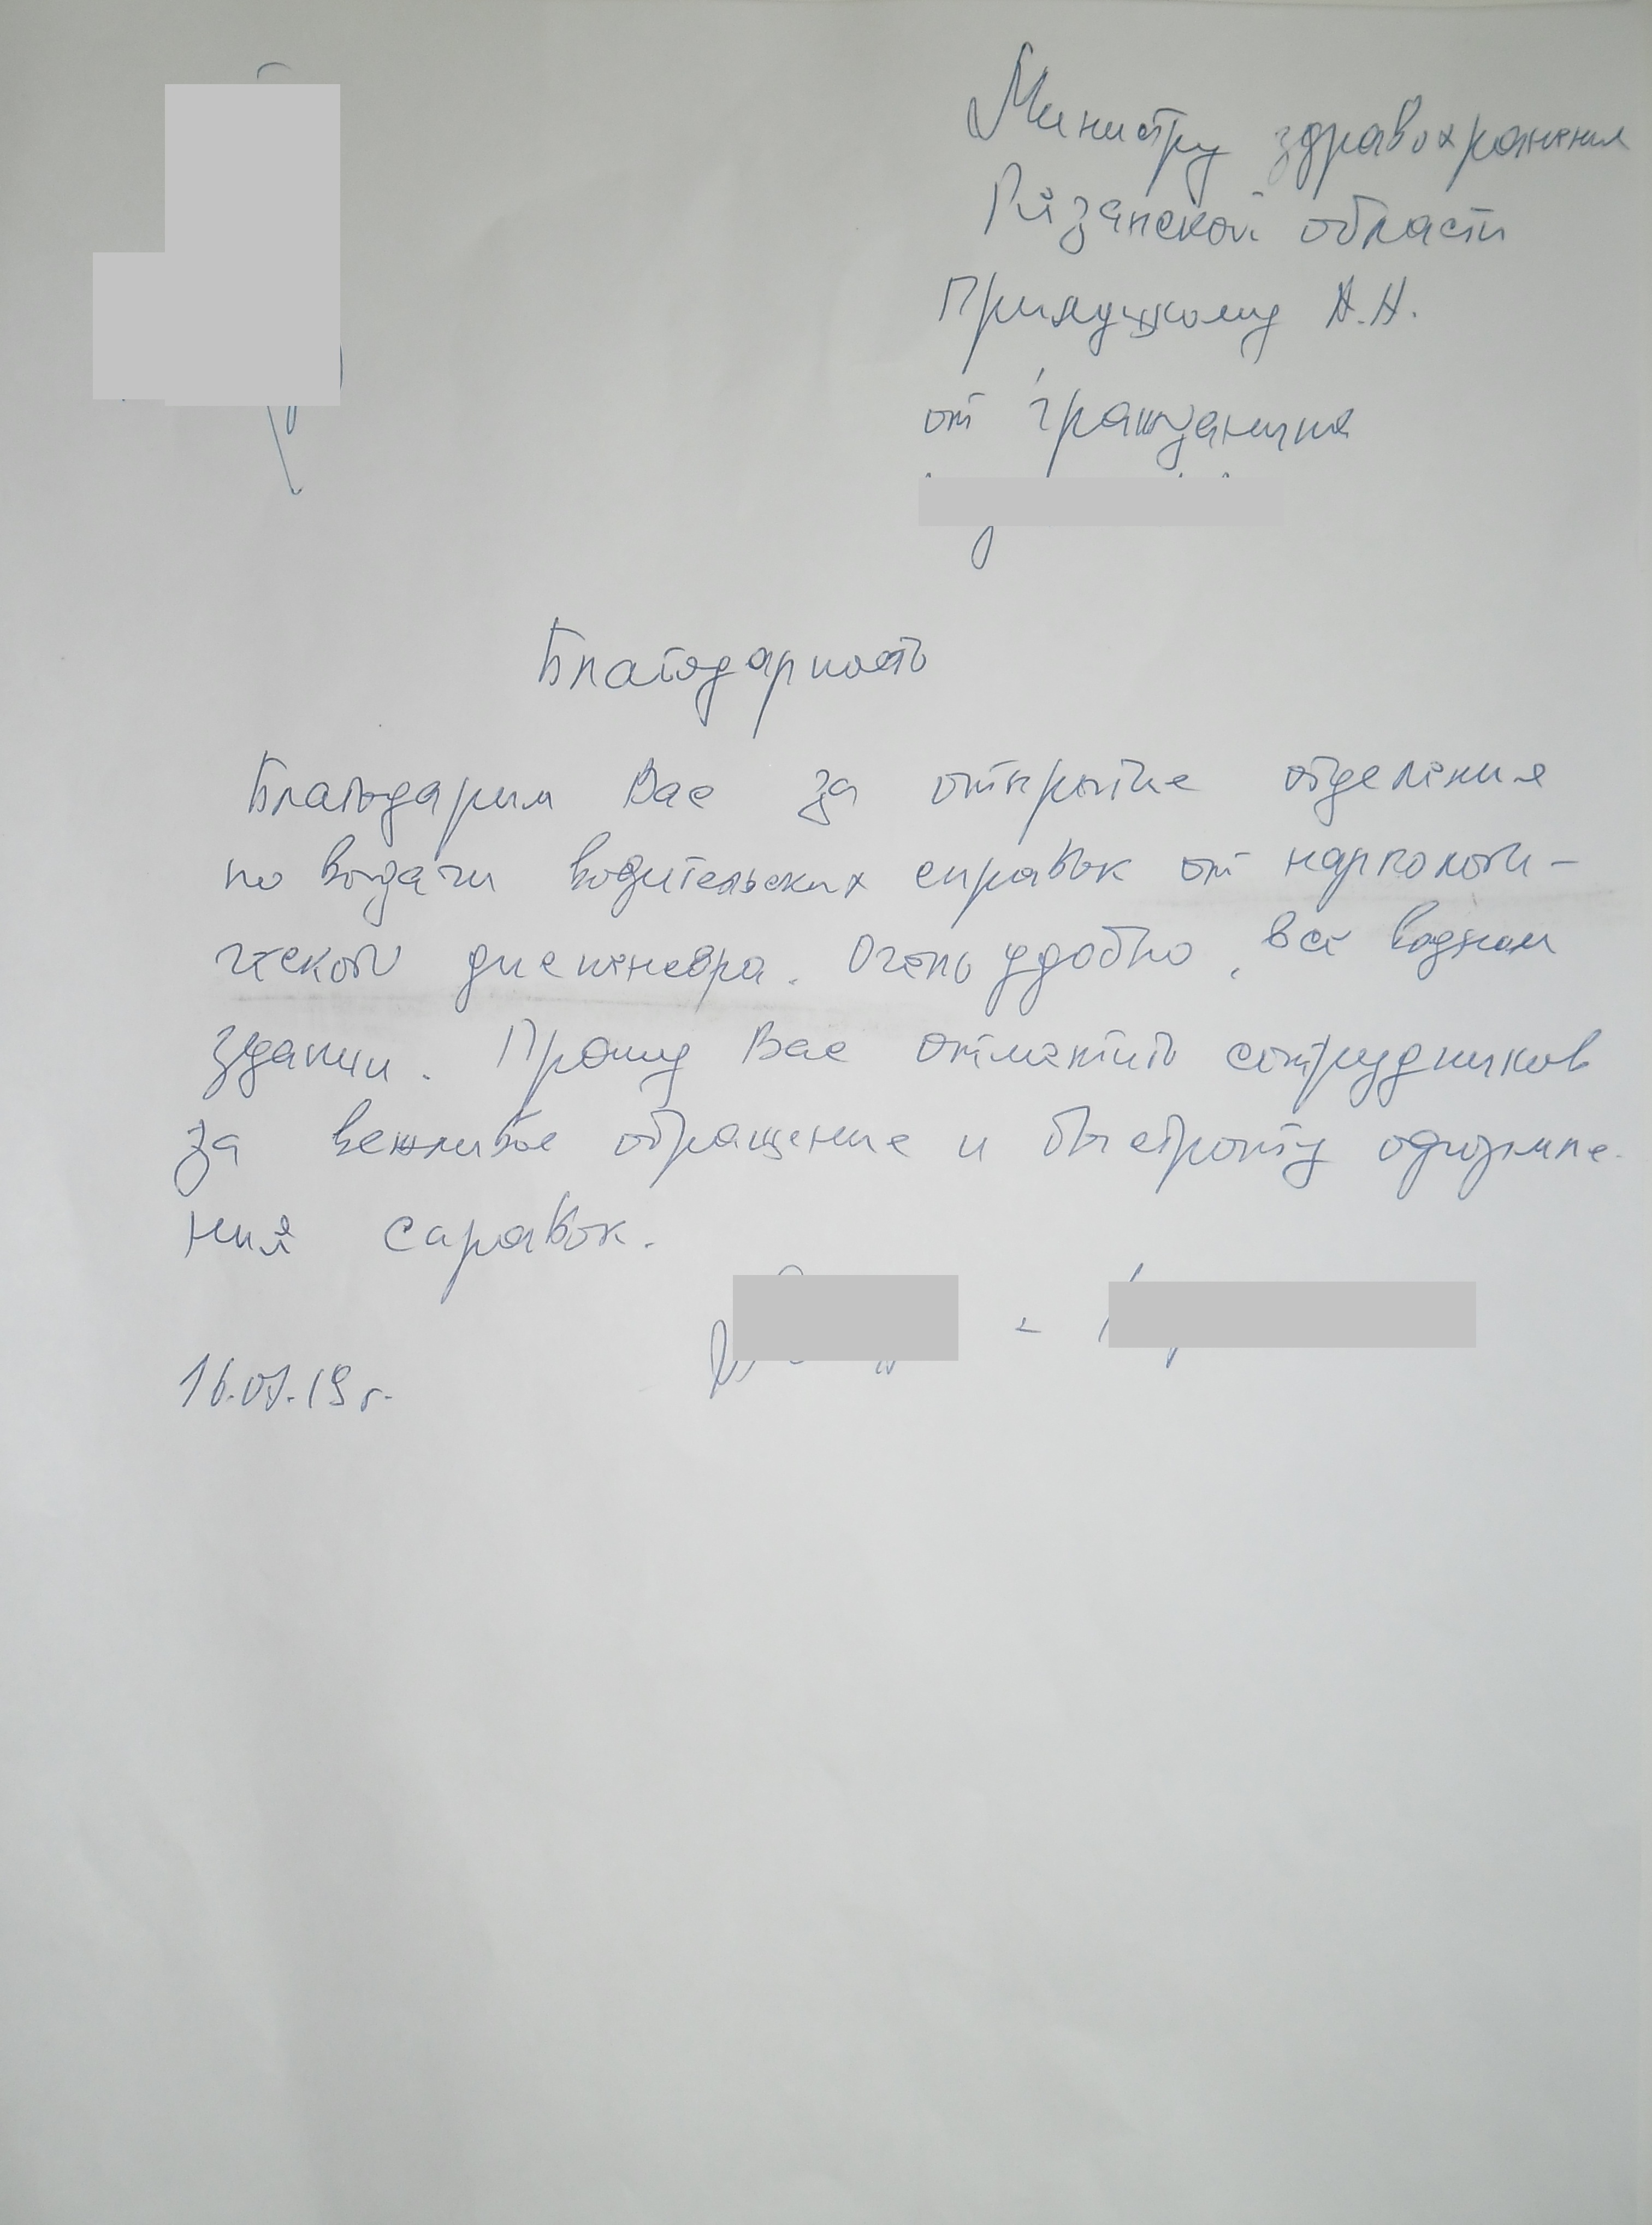 Министру здравохранения
Рязанской области
Прилуцкому А.А.
от гражданина
Благодарность
Благодарим Вас за открытие отделения
по выдачи водительских справок от наркологи-
ческого диспенсера. Очень удобно, все в одном
здании. Прошу Вас отметить сотрудников
за вежливое обращение и быстроту оформле-
ния справок.
16.07.19 г.